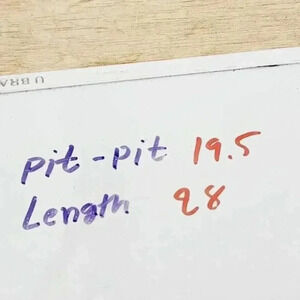 U BRA
pit-pit 19.5
Length 28